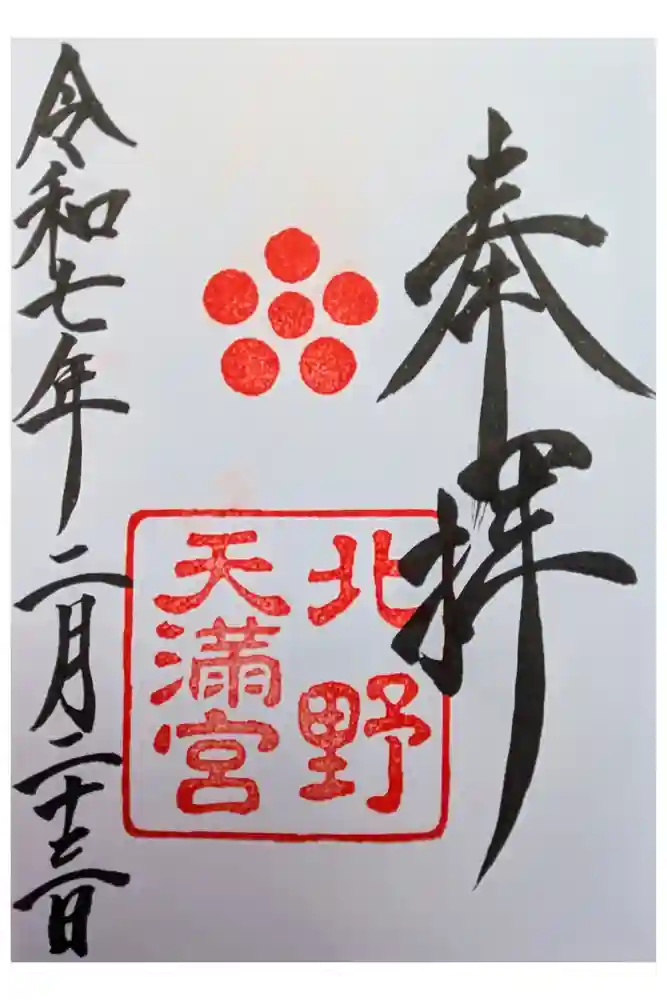 奉拝
北野
天満宮
令和七年二月二十三日